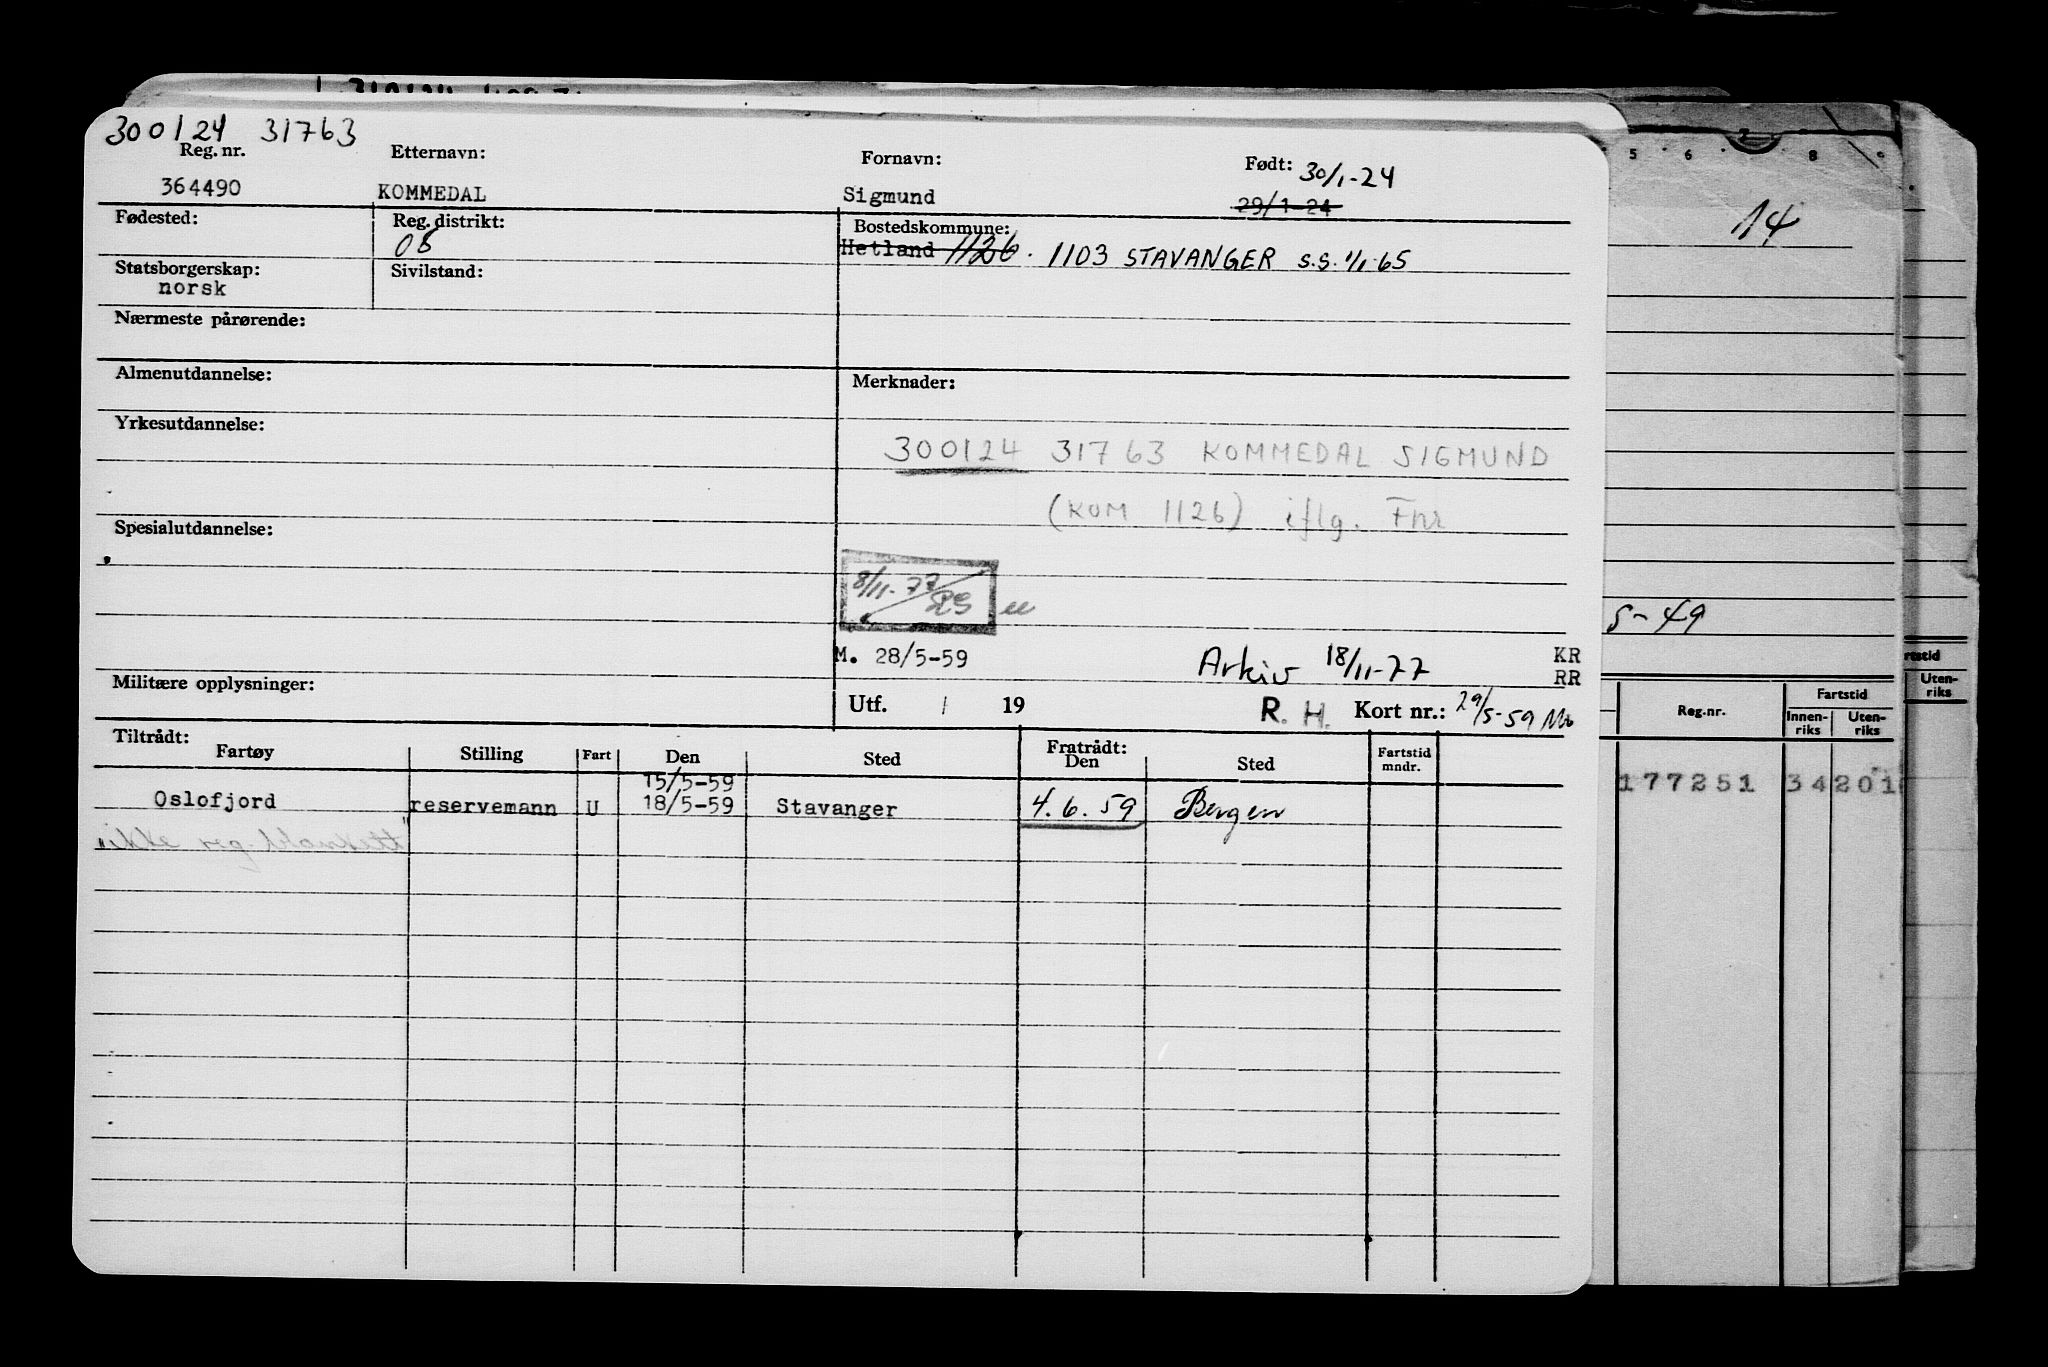 300124 31763
Reg. nr. Etternavn: Fornavn: Født: 30/1-24
364490 KOMMEDAL Sigmund 29/1-24
Fødested: Reg. distrikt: Bostedskommune:
08 Hetland 1126. 1103 STAVANGER S.S. 1/1-65
Statsborgerskap: Sivilstand:
norsk
Nærmeste pårørende:
Almenutdannelse: Merknader:
Yrkesutdannelse:
300124 31763 KOMMEDAL SIGMUND
(KOM 1126) iflg. Fnr
Spesialutdannelse:
8/11-77
M. 28/5-59 Arkiv 18/11-77 KR
RR
Militære opplysninger:
Utf. / 19 R. H. Kort nr.: 29/5-59
Tiltrådt: Fratrådt:
Fartøy Stilling Fart Den Sted Den Sted Fartstid mndr.
15/5-59
Oslofjord reservemann U 18/5-59 Stavanger 4.6.59 Bergen
"ikke reg. blankett"
5 6 7 8
14
5-49
Fartstid
Reg.nr. Innen-riks Uten-riks
177251 34 201
Uten-
riks